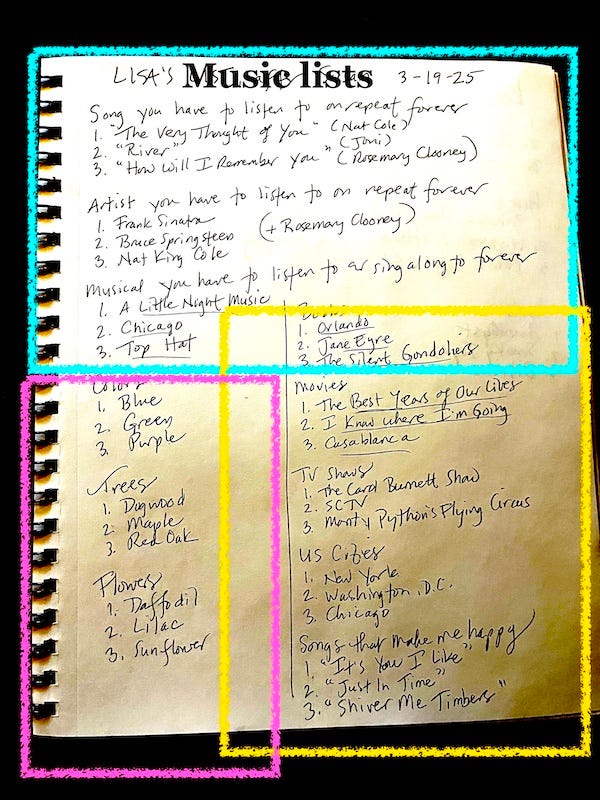 LISA'S Music lists 3-19-25
Song you have to listen to on repeat forever
1. "The Very Thought of You" (Nat Cole)
2. "River" (Joni)
3. "How Will I Remember You" (Rosemary Clooney)
Artist you have to listen to on repeat forever
1. Frank Sinatra
2. Bruce Springsteen (+ Rosemary Clooney)
3. Nat King Cole
Musical you have to listen to or sing along to forever
1. A Little Night Music
2. Chicago
3. Top Hat
Colors
1. Blue
2. Green
3. Purple
Trees
1. Dogwood
2. Maple
3. Red Oak
Flowers
1. Daffodil
2. Lilac
3. Sunflower
Books
1. Orlando
2. Jane Eyre
3. The Silent Gondoliers
Movies
1. The Best Years of Our Lives
2. I Know Where I'm Going
3. Casablanca
TV Shows
1. The Carol Burnett Show
2. SCTV
3. Monty Python's Flying Circus
US Cities
1. New York
2. Washington, D.C.
3. Chicago
Songs that make me happy
1. "It's You I Like"
2. "Just In Time"
3. "Shiver Me Timbers"